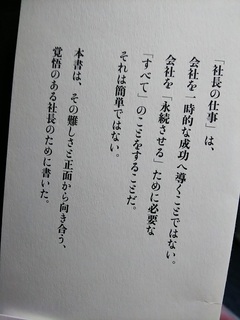 「社長の仕事」は、
会社を一時的な成功へ導くことではない。
会社を「永続させる」ために必要な
「すべて」のことをすることだ。
それは簡単ではない。
本書は、その難しさと正面から向き合う、
覚悟のある社長のために書いた。